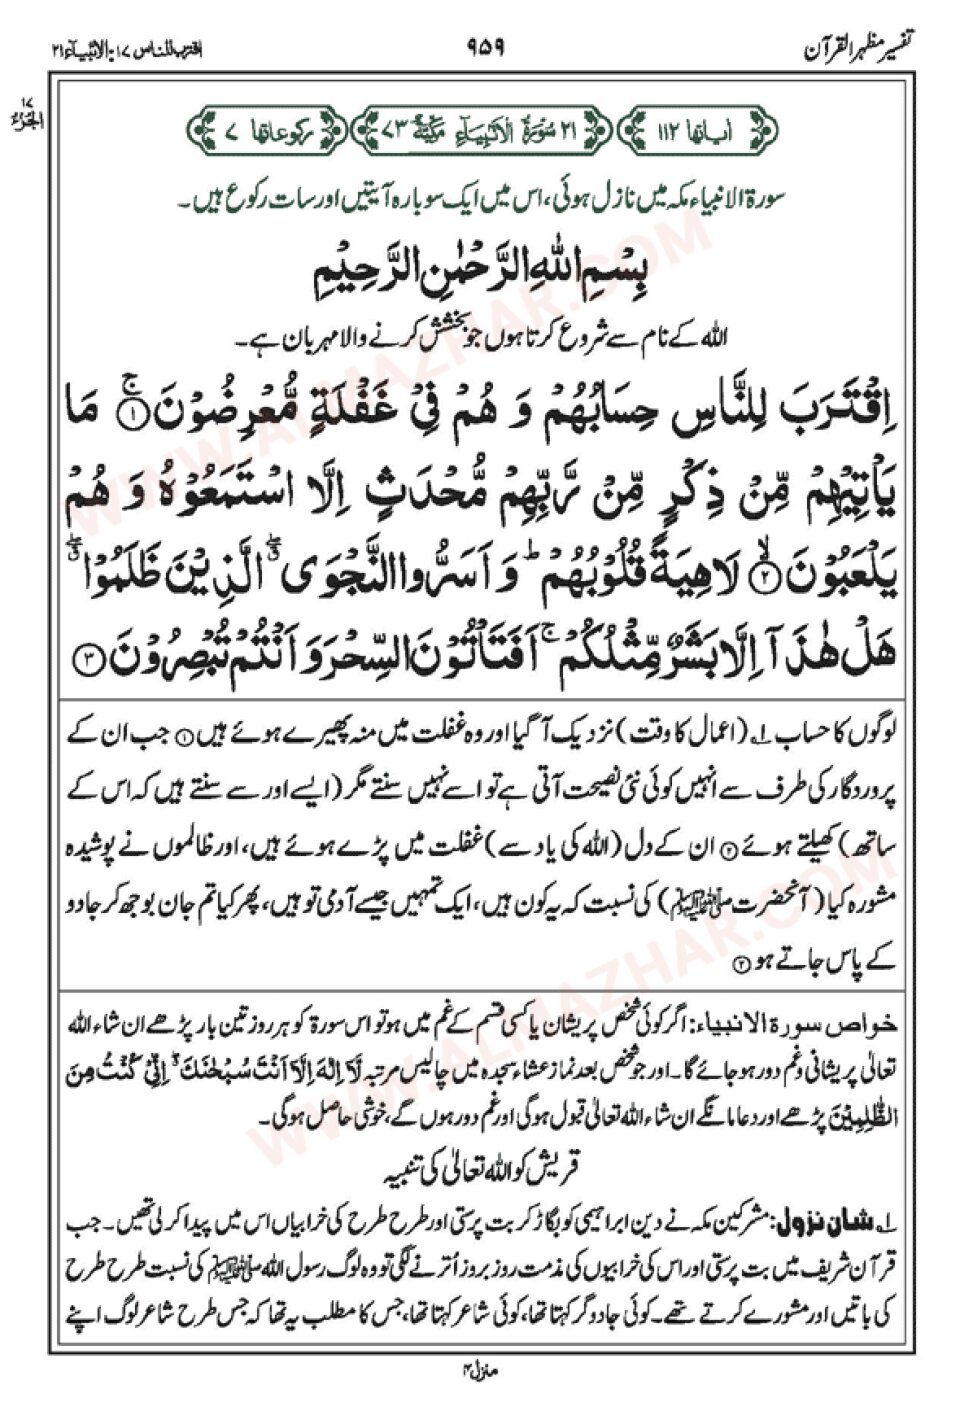 تفسیر مظہر القرآن
۹۵۹
اقترب للناس ۱۷: الانبیآء ۲۱
۱۷
الجزء
اٰیاتھا ۱۱۲
۲۱ سُوْرَۃُ الْاَنْبِیَآءِ مَکِّیَّۃٌ ۷۳
رکوعاتھا ۷
سورۃ الانبیاء مکہ میں نازل ہوئی، اس میں ایک سو بارہ آیتیں اور سات رکوع ہیں۔
بِسْمِ اللّٰہِ الرَّحْمٰنِ الرَّحِیْمِ
اللہ کے نام سے شروع کرتا ہوں جو بخشش کرنے والا مہربان ہے۔
اِقْتَرَبَ لِلنَّاسِ حِسَابُھُمْ وَ ھُمْ فِیْ غَفْلَۃٍ مُّعْرِضُوْنَ ۚ﴿۱﴾ مَا
یَاْتِیْھِمْ مِّنْ ذِکْرٍ مِّنْ رَّبِّھِمْ مُّحْدَثٍ اِلَّا اسْتَمَعُوْہُ وَ ھُمْ
یَلْعَبُوْنَ ۙ﴿۲﴾ لَاھِیَۃً قُلُوْبُھُمْ ؕ وَ اَسَرُّوا النَّجْوَی ٭ۖ الَّذِیْنَ ظَلَمُوْا ٭ۖ
ھَلْ ھٰذَاۤ اِلَّا بَشَرٌ مِّثْلُکُمْ ۚ اَفَتَاْتُوْنَ السِّحْرَ وَ اَنْتُمْ تُبْصِرُوْنَ ﴿۳﴾
لوگوں کا حساب ۱؎ (اعمال کا وقت) نزدیک آ گیا اور وہ غفلت میں منہ پھیرے ہوئے ہیں ﴿۱﴾ جب ان کے
پروردگار کی طرف سے انہیں کوئی نئی نصیحت آتی ہے تو اسے نہیں سنتے مگر (ایسے اور سے سنتے ہیں کہ اس کے
ساتھ) کھیلتے ہوئے ﴿۲﴾ ان کے دل (اللہ کی یاد سے) غفلت میں پڑے ہوئے ہیں، اور ظالموں نے پوشیدہ
مشورہ کیا (آنحضرت ﷺ) کی نسبت کہ یہ کون ہیں، ایک تمہیں جیسے آدمی تو ہیں، پھر کیا تم جان بوجھ کر جادو
کے پاس جاتے ہو ﴿۳﴾
خواص سورۃ الانبیاء: اگر کوئی شخص پریشان یا کسی قسم کے غم میں ہو تو اس سورۃ کو ہر روز تین بار پڑھے ان شاء اللہ
تعالیٰ پریشانی و غم دور ہو جائے گا۔ اور جو شخص بعد نماز عشاء سجدہ میں چالیس مرتبہ لَاۤ اِلٰہَ اِلَّاۤ اَنْتَ سُبْحٰنَکَ ۖ اِنِّیْ کُنْتُ مِنَ
الظّٰلِمِیْنَ پڑھے اور دعا مانگے ان شاء اللہ تعالیٰ قبول ہوگی اور غم دور ہوں گے، خوشی حاصل ہوگی۔
قریش کو اللہ تعالیٰ کی تنبیہ
۱؎ شان نزول: مشرکین مکہ نے دین ابراہیمی کو بگاڑ کر بت پرستی اور طرح طرح کی خرابیاں اس میں پیدا کر لی تھیں۔ جب
قرآن شریف میں بت پرستی اور اس کی خرابیوں کی مذمت روز بروز اُترنے لگی تو وہ لوگ رسول اللہ ﷺ کی نسبت طرح طرح
کی باتیں اور مشورے کرتے تھے۔ کوئی جادوگر کہتا تھا، کوئی شاعر کہتا تھا، جس کا مطلب یہ تھا کہ جس طرح شاعر لوگ اپنے
منزل ۴
WWW.ALMAZHAR.COM
WWW.ALMAZHAR.COM